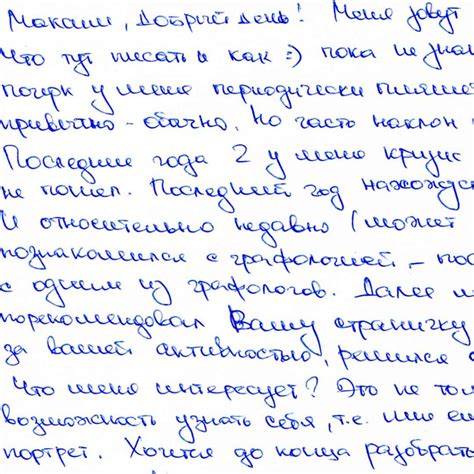 Максим, Добрый день! Меня зовут
Что тут писать и как :) пока не знаю
почерк у меня периодически пляшет
привычно - обычно, но часть наклон
Последние года 2 у меня кризис
не пошел. Последний год нахожусь
И относительно недавно (может
познакомился с графологией, - пос
с одним из графологов. Далее м
порекомендовал Вашу страничку
за вашей активностью, решился
Что меня интересует? Это не тол
возможность узнать себя, т.е. мне
портрет. Хочется до конца разобрать